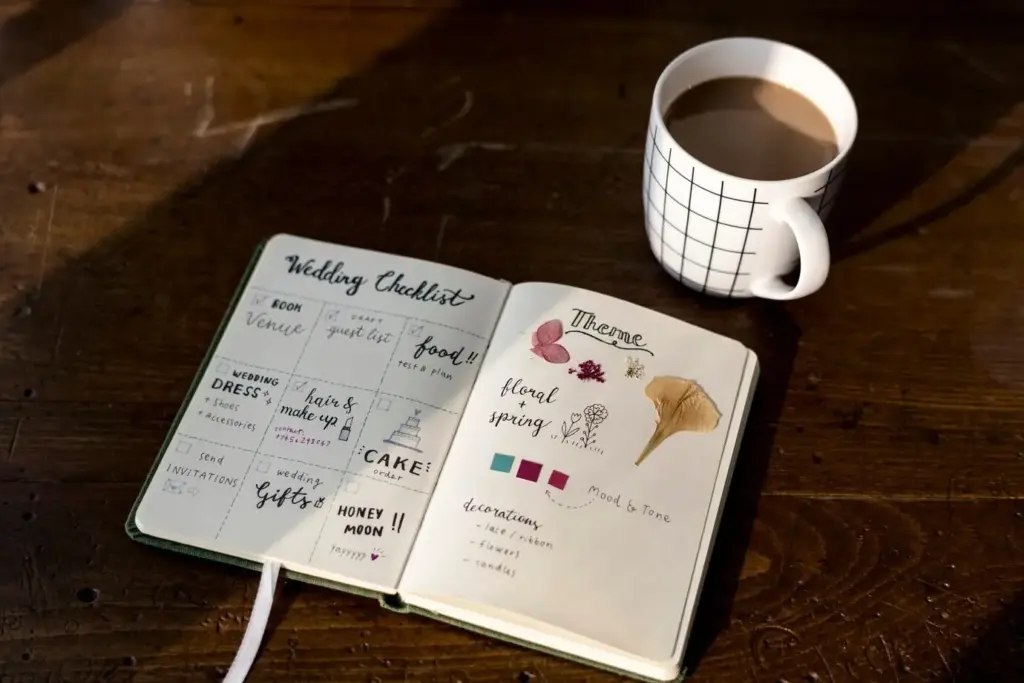 Wedding Checklist
BOOK
Venue
DRAFT
guest list
food!!
test & plan
WEDDING
DRESS
+ Shoes
+ Accessories
hair &
make up
contact:
CAKE
order
send
INVITATIONS
wedding
Gifts
HONEY
MOON !!
Yayyyyy
Theme
floral
+
spring
Mood & Tone
decorations
- lace / ribbon
- flowers
- candles